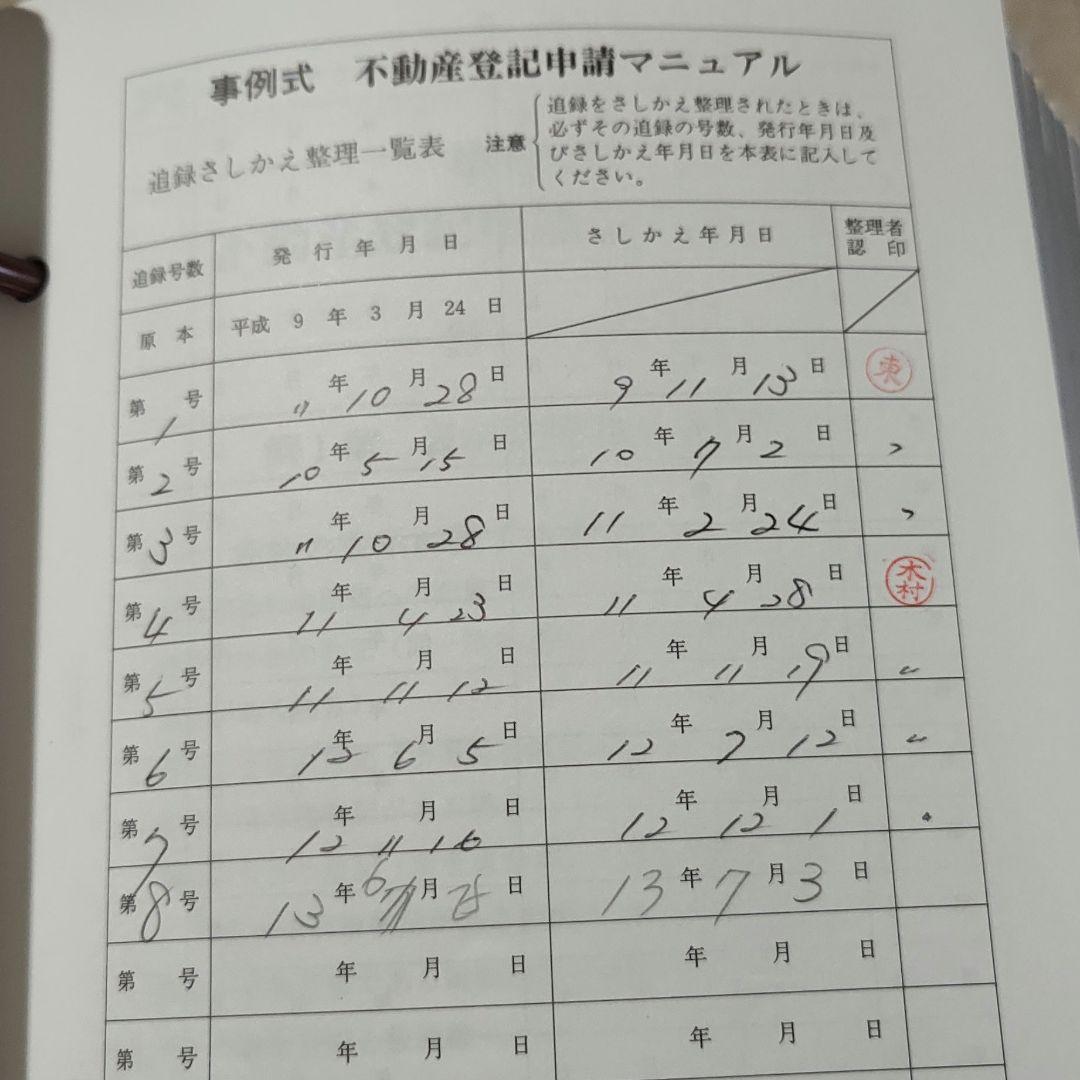 事例式 不動産登記申請マニュアル
追録さしかえ整理一覧表
注意
追録をさしかえ整理されたときは、
必ずその追録の号数、発行年月日及
びさしかえ年月日を本表に記入して
ください。
追録号数 発行年月日 さしかえ年月日 整理者認印
原本 平成 9 年 3 月 24 日
第1号 〃年10月28日 9年11月13日 東
第2号 10年5月15日 10年7月2日 〃
第3号 〃年10月28日 11年2月24日 〃
第4号 11年4月23日 11年4月28日 木村
第5号 11年11月12日 11年11月19日 〃
第6号 12年6月5日 12年7月12日 〃
第7号 12年11月16日 12年12月1日
第8号 13年6月 日 13年7月3日
第 号 年 月 日 年 月 日
第 号 年 月 日 年 月 日